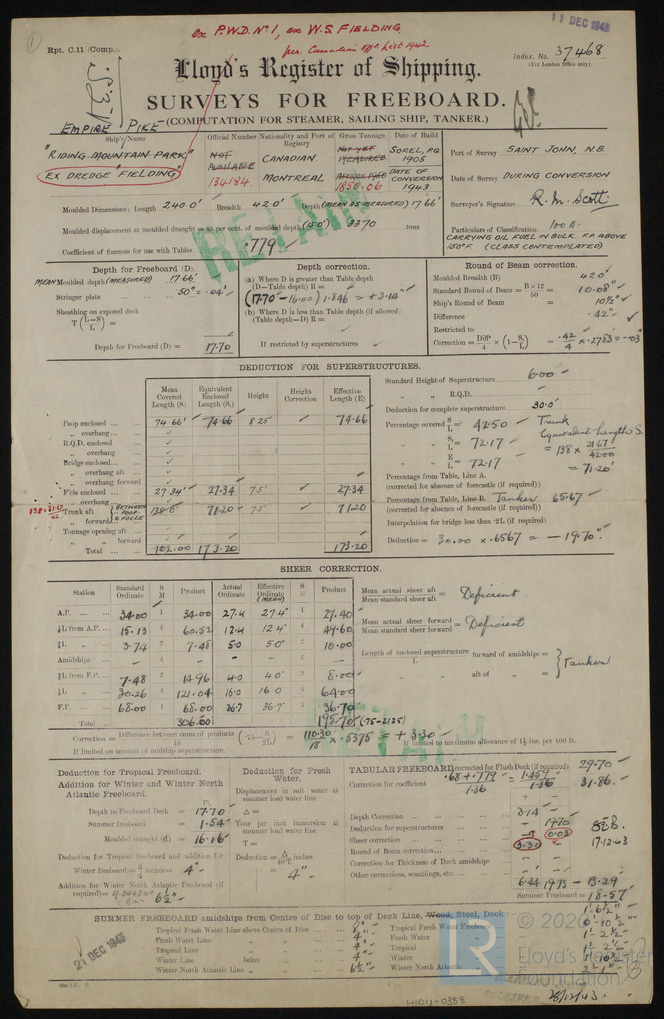 ex P.W.D. No 1, ex W.S. FIELDING
per Canadian Off. List 1942
11 DEC 1943
Rpt. C.11 (Comp.).
Index. No. 37468
(For London Office only).
Lloyd's Register of Shipping.
SURVEYS FOR FREEBOARD.
(COMPUTATION FOR STEAMER, SAILING SHIP, TANKER.)
EMPIRE PIKE
Ship's Name
"RIDING MOUNTAIN PARK"
EX DREDGE "FIELDING"
Official Number
NOT AVAILABLE
134184
Nationality and Port of Registry
CANADIAN
MONTREAL
Gross Tonnage
NOT YET MEASURED
APPROX 1950
1850.06
Date of Build
SOREL, P.Q.
1905
DATE OF CONVERSION
1943
Port of Survey SAINT JOHN, N.B.
Date of Survey DURING CONVERSION
Surveyor's Signature R. M. Scott
Particulars of Classification 100A-
CARRYING OIL FUEL IN BULK. F.P. ABOVE
150°F. (CLASS CONTEMPLATED)
Moulded Dimensions: Length 240.0' Breadth 42.0' Depth (MEAN AS MEASURED) 17.66'
Moulded displacement at moulded draught = 85 per cent. of moulded depth (15.0') 3370 tons
Coefficient of fineness for use with Tables .779
RETAIN
Depth for Freeboard (D).
MEAN Moulded depth (MEASURED) 17.66'
Stringer plate .50" = .04'
Sheathing on exposed deck
T (L-S / L) =
Depth for Freeboard (D) = 17.70
Depth correction.
(a) Where D is greater than Table depth
(D—Table depth) R =
(17.70 - 16.00) 1.846 = + 3.14"
(b) Where D is less than Table depth (if allowed)
(Table depth—D) R =
If restricted by superstructures
Round of Beam correction.
Moulded Breadth (B) 42.0'
Standard Round of Beam = B×12 / 50 = 10.08"
Ship's Round of Beam = 10½"
Difference .42"
Restricted to
Correction = Diffce / 4 × (1 - S₁/L) = .42/4 × .2783 = -.03"
DEDUCTION FOR SUPERSTRUCTURES.
Mean Covered Length (S) Equivalent Enclosed Length (S₁) Height Height Correction Effective Length (E)
Poop enclosed 74.66' 74.66 8.25' 74.66
„ overhang
R.Q.D. enclosed
„ overhang
Bridge enclosed
„ overhang aft
„ overhang forward
F'cle enclosed 27.34' 27.34 7.5' 27.34
„ overhang
138 × 21.67/42 Trunk aft BETWEEN POOP & FOCLE 138.0' 71.20 7.5' 71.20
„ forward
Tonnage opening aft
„ „ forward
Total 102.00 173.20 173.20
Standard Height of Superstructure 6.00
„ „ R.Q.D. -
Deduction for complete superstructure 30.0"
Percentage covered S/L = 42.50
„ „ S₁/L = 72.17
„ „ E/L = 72.17
Trunk
Equivalent Length S₁
= 138 × 21.67/42.00
= 71.20'
Percentage from Table, Line A.
(corrected for absence of forecastle (if required))
Percentage from Table, Line B. Tanker 65.67
(corrected for absence of forecastle (if required))
Interpolation for bridge less than ·2L (if required)
Deduction = 30.00 × .6567 = - 19.70"
SHEER CORRECTION.
Station Standard Ordinate S M Product Actual Ordinate Effective Ordinate (MEAN) S M Product
A.P. 34.00 1 34.00 27.4 27.4" 1 27.40
⅙L from A.P. 15.13 4 60.52 12.4 12.4" 4 49.60
⅓L „ 3.74 2 7.48 5.0 5.0" 2 10.00
Amidships - 4 - - - 4 -
⅓L from F.P. 7.48 2 14.96 4.0 4.0" 2 8.00
⅙L „ 30.26 4 121.04 16.0 16.0" 4 64.00
F.P. 68.00 1 68.00 36.7 36.7" 1 36.70
Total 306.00 195.70 (.75-.2125)
Mean actual sheer aft / Mean standard sheer aft = Deficient
Mean actual sheer forward / Mean standard sheer forward = Deficient
Length of enclosed superstructure / L forward of amidships = Tanker
„ „ aft of „ =
Correction = Difference between sums of products / 18 (·75 - S/2L) = 110.30/18 × .5375 = + 3.30"
If limited on account of midship superstructure.
If limited to maximum allowance of 1½ ins. per 100 ft.
Deduction for Tropical Freeboard.
Addition for Winter and Winter North Atlantic Freeboard.
Depth to Freeboard Deck = 17.70
Summer freeboard = 1.54
Moulded draught (d) = 16.16
Deduction for Tropical freeboard and addition for
Winter freeboard = d/4 inches = 4"
Addition for Winter North Atlantic Freeboard (if required) = 6½"
Deduction for Fresh Water.
Displacement in salt water at summer load water line
Δ =
Tons per inch immersion at summer load water line
T =
Deduction = Δ / 40 T inches
= 4"
TABULAR FREEBOARD corrected for Flush Deck (if required) 29.70
Correction for coefficient .68 + .779 / 1.36 = 1.459/1.36 31.86
+ -
Depth Correction 3.14 -
Deduction for superstructures - 19.70
Sheer correction 3.30
Round of Beam correction 0.03
Correction for Thickness of Deck amidships
Other corrections, scantlings, etc.
6.44 19.73 - 13.29
Summer Freeboard = 18.57
17.12.43
SUMMER FREEBOARD amidships from Centre of Disc to top of Deck Line, Wood, Steel, Deck: 1'-6½"
Tropical Fresh Water Line above Centre of Disc 8" Tropical Fresh Water Freeboard 0'-10½"
Fresh Water Line „ „ 4" Fresh Water „ 1'-2½"
Tropical Line „ „ 4" Tropical „ 1'-2½"
Winter Line below „ 4" Winter „ 1'-10½"
Winter North Atlantic Line „ „ 6½" Winter North Atlantic „ 2'-1"
21 DEC 1943
28/12/43
H104-0388
LR
© 2020
Lloyd's Register
Foundation